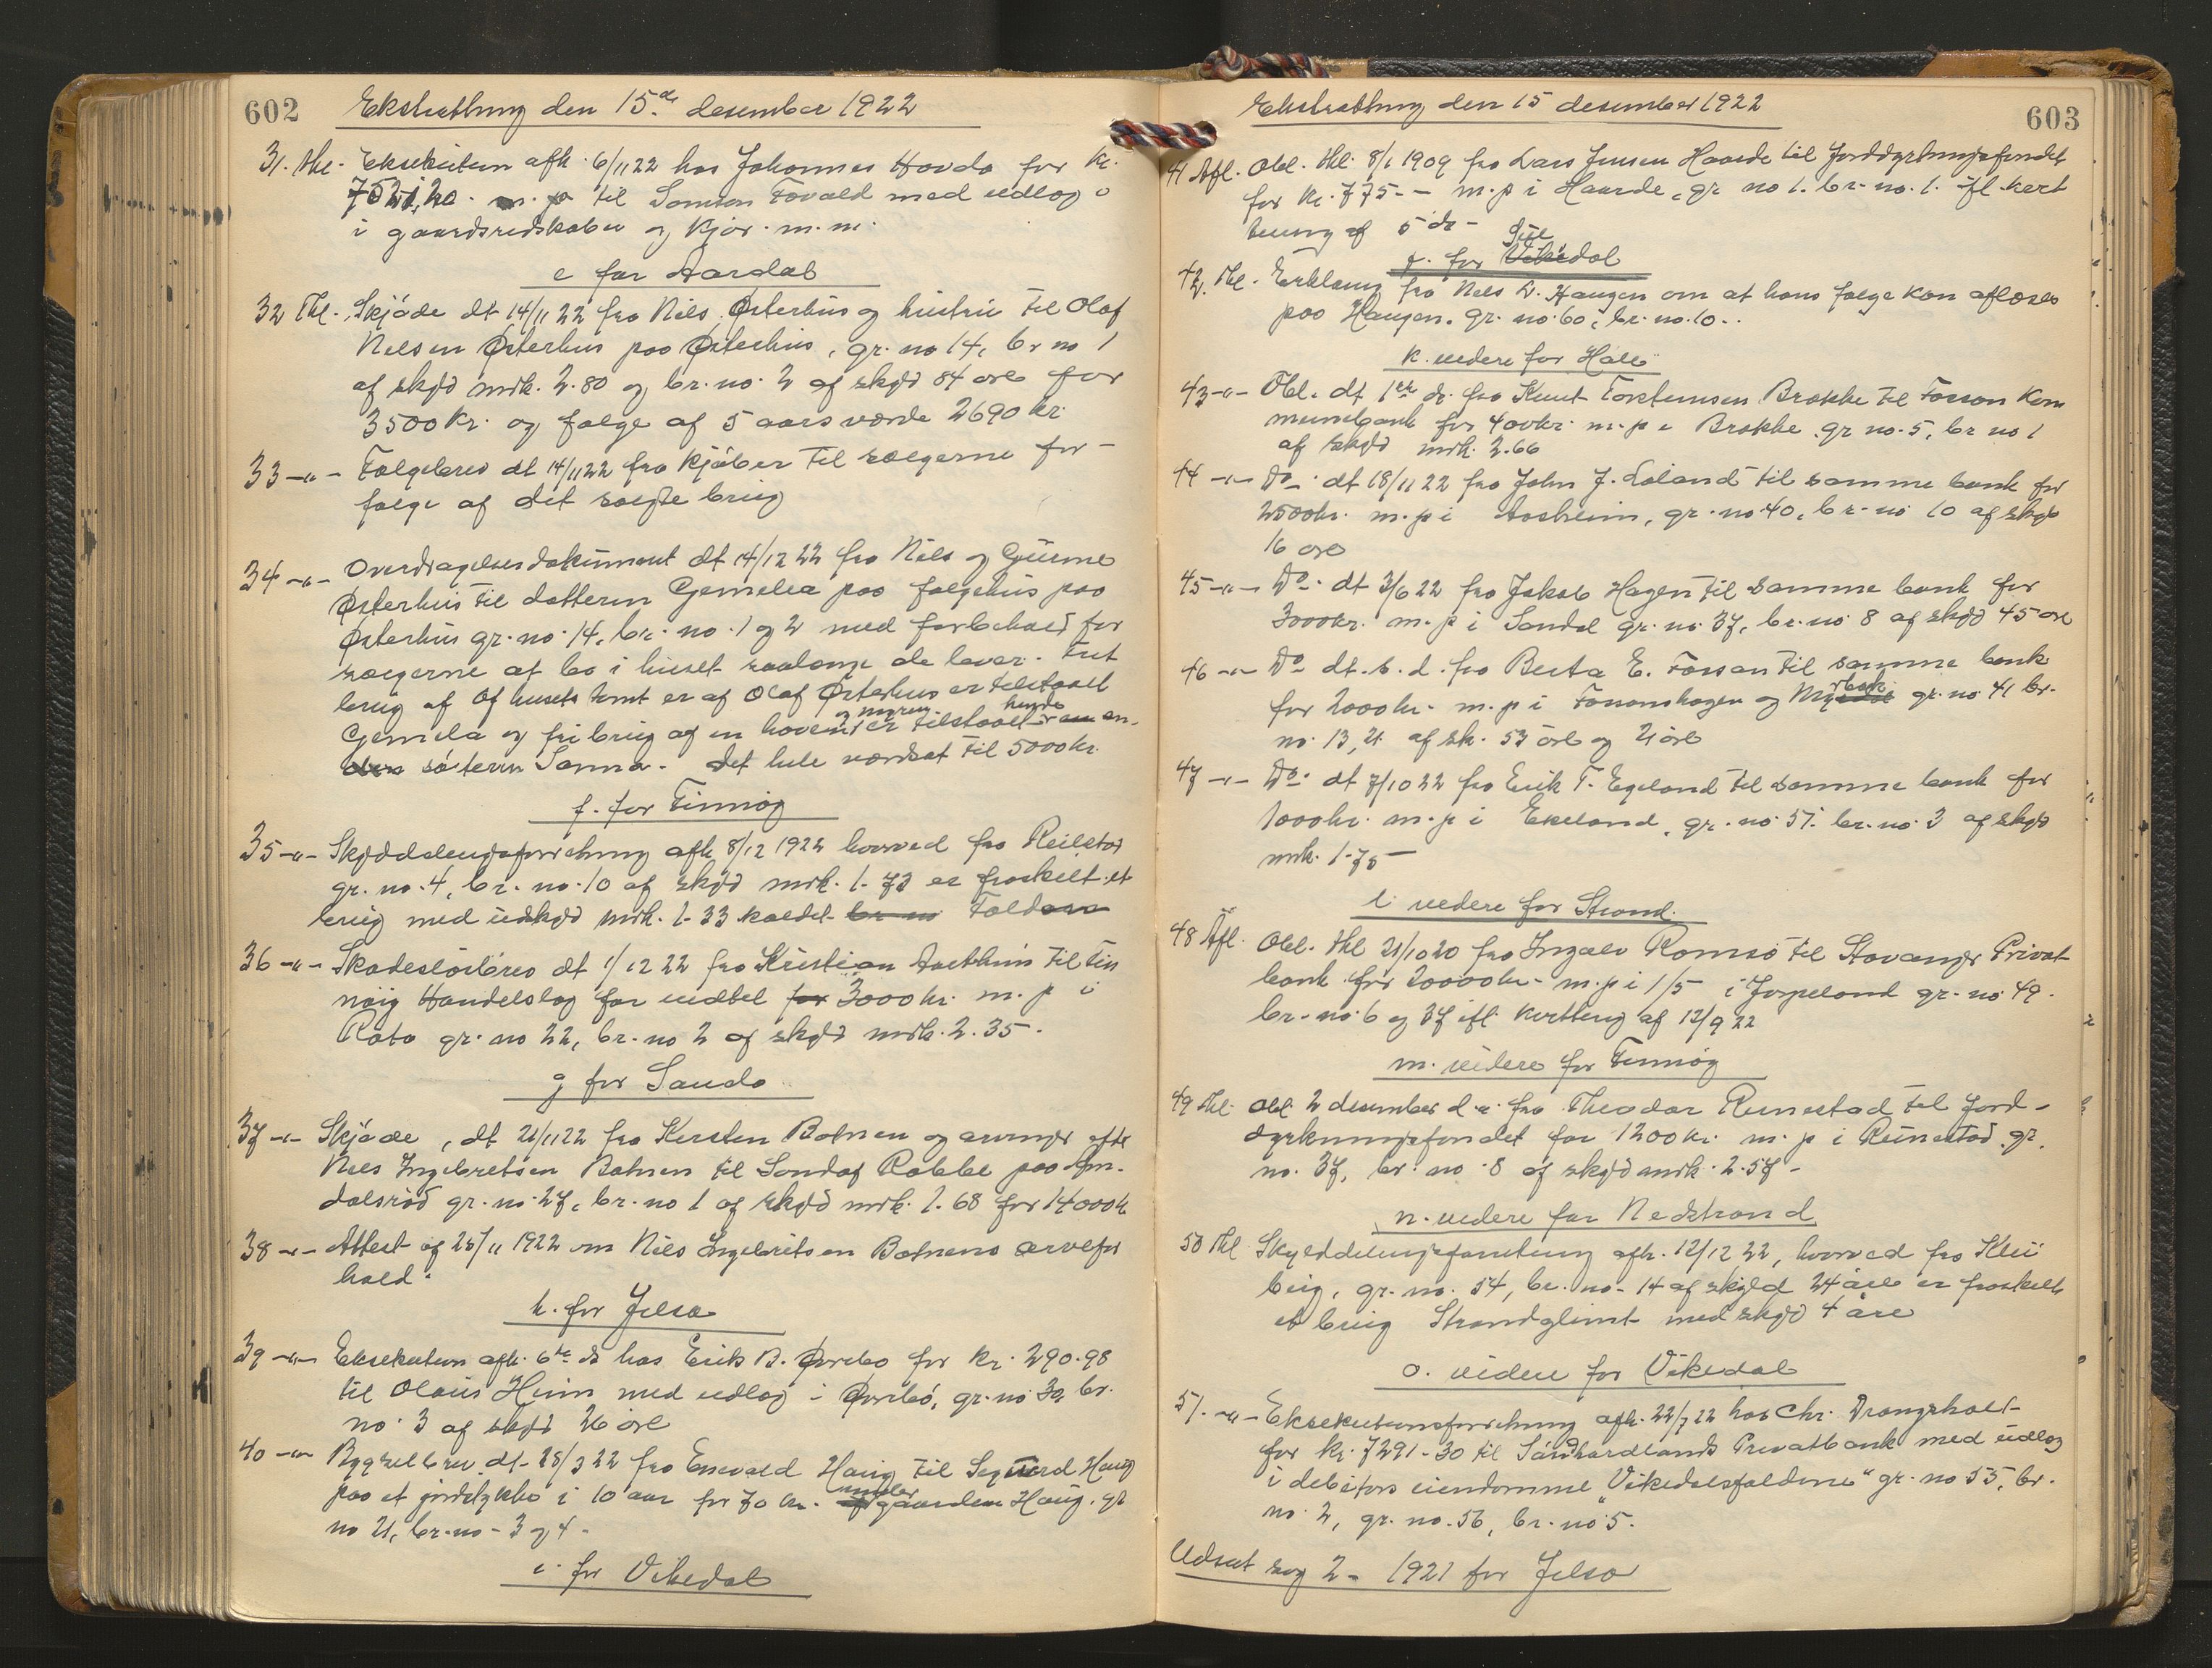 602 Ekstratthing den 15de desember 1922
31. thl. Eksekution afh. 6/11 22 hos Johannes Hovda for kr.
til Samson Fovald med udlog i
i gaardsredskaber og kjør. m.m.
e for Aardal
32 Thl. Skjöde dt 14/11 22 fra Nils Østerhus og hustru til Olaf
Nelsen Østerhus paa Østerhus, gr. no 14, br no 1
af skyld mrk. 2.80 og br. no. 2 af skyld 84 øre for
3500 kr. og folge af 5 aars værde 2690 kr.
33 -"- Folgebrev dt 14/11 22 fra kjöber til sælgerne for
folge af det solgte brug
34 -"- Overdragelsesdokument dt 14/12 22 fra Nils og Gurine
Østerhus til datteren Gemelia paa folgehus paa
Østerhus gr. no. 14, br. no. 1 og 2 med forbehold for
sælgerne at bo i huset saalænge de lever. Frit
brug af husets tomt er af Olaf Østerhus er tilstaaet
Gemelia og fri brug af en have og myren er tilstaaet hende
söster Sanna. Det hele værdsat til 5000 kr.
f. for Finnöy
35 -"- Skylddelingsforretning afh 8/12 1922 hvorved fra Reilstad
gr. no. 4, br. no. 10 af skyld mrk. 1.73 er fraskilt et
brug med udskyld mrk. 1-33 kaldet br no Fold
36 -"- Skadeslösbrev dt 1/12 22 fra Kristian til Fin
nöy Handelslag for indtil for 3000 kr. m. p i
gr. no 22, br. no 2 af skyld mrk. 2.35.
g for Sauda
37 -"- Skjøde, dt 21/11 22 fra Kirsten Botnen og arvinger efter
Nils Ingebretsen Botnen til Sondaf Rabbe paa Am-
dalsröd gr. no. 27, br. no 1 af skyld mrk. 1.68 for 14000 k
38 -"- Attest af 25/11 1922 om Nils Ingebritsen Botnens arvefor
hold.
h. for Jelsa
39 -"- Eksekution afh. 6te ds hos Erik B. Øvrebø for kr. 290.98
til Olaus Heim med udlog i Øvrebö, gr. no 30, br.
no. 3 af skyld 26 öre
40 -"- Bygselbrev dt 28/3 22 fra Enevald Haug til Sigurd Haug
paa et jordstykke i 10 aar for 70 kr. under gaarden Haug. gr
no 21, br. no - 3 og 4 -
i. for Vikedal
603 Ekstratthing den 15 desember 1922
41 Afl. Obl. thl. 8/1 1909 fra Lars Jensen Haarde til Jorddyrkningsfondet
for kr. 775.- m.p i Haarde, gr no 1. br. no. 1. ifl kvit
tering af 5 ds -
j. for Vikedal
42. Thl. Erklæring fra Nils L. Haugen om at hans folge kan afløses
paa Haugen. gr. no. 60, br. no. 10..
k. videre for Hale
43 -"- Obl. dt 1ste ds. fra Knut Torstensen Brokke til Fossan Kom
munebank for 400 kr. m. p i Brokke gr no. 5, br no 1
af skyld mrk. 2.66
44 -"- Do. dt 18/11 22 fra John J. Löland til samme bank for
2500 kr. m. p i Aasheim, gr. no 40, br. no 10 af skyld
16 øre
45 -"- Do. dt 3/6 22 fra Jakob Hagen til samme bank for
3000 kr. m. p i Sandal gr. no. 37, br. no 8 af skyld 45 øre
46 -"- Do dt. s. d. fra Berta E. Fossan til samme bank
for 2000 kr. m. p i Fossanshagen og gr. no 41 br.
no. 13, 21 af sk. 53 öre og 21 öre
47 -"- Do. dt 7/10 22 fra Erik T. Egeland til samme bank for
1000 kr. m. p i Ekeland, gr. no. 51. br. no. 3 af skyld
mrk. 1.75 -
l. videre for Strand.
48 Afl. Obl. thl 21/10 20 fra Ingalv Romsö til Stavanger Privat
bank for 20000 kr. m. p i 1/5 i Jörpeland gr. no 49.
br. no 6 og 37 ifl kvittering af 12/9 22
m. videre for Finnöy
49 thl. Obl 2 desember d.a. fra Theodor Reinestad til Jord-
dyrkningsfondet for 1200 kr. m. p i Reinestad gr.
no. 37, br. no. 8 af skyld mrk. 2.57 -
n. videre for Nedstrand
50 thl Skylddelingsforretning afh. 12/12 22, hvorved fra Klu
brug, gr. no. 54, br. no. 14 af skyld 24 øre er fraskilt
et brug Strandglimt med skyld 4 øre
o. videre for Vikedal
51. -"- Eksekutionsforretning afh. 22/7 22 hos Chr. Drangsholt
for kr. 7291-30 til Söndhordlands Privatbank med udlog
i debitors eiendomme "Vikedalsfoldene" gr. no 55, br.
no. 2, gr. no. 56, br. no 5.
Udsat sag 2 - 1921 for Jelsa